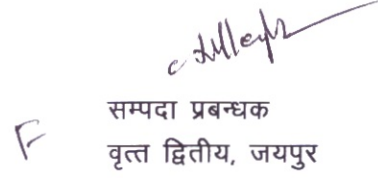 सम्पदा प्रबन्धक
F वृत्त द्वितीय, जयपुर